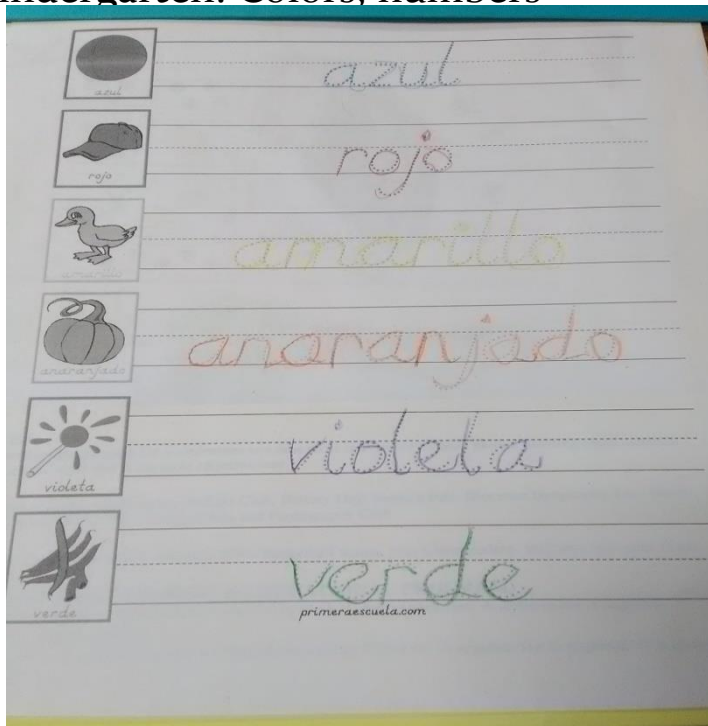 ndergarten: Colors, numbers
azul
azul
rojo
rojo
amarillo
amarillo
anaranjado
anaranjado
violeta
violeta
verde
verde
primeraescuela.com